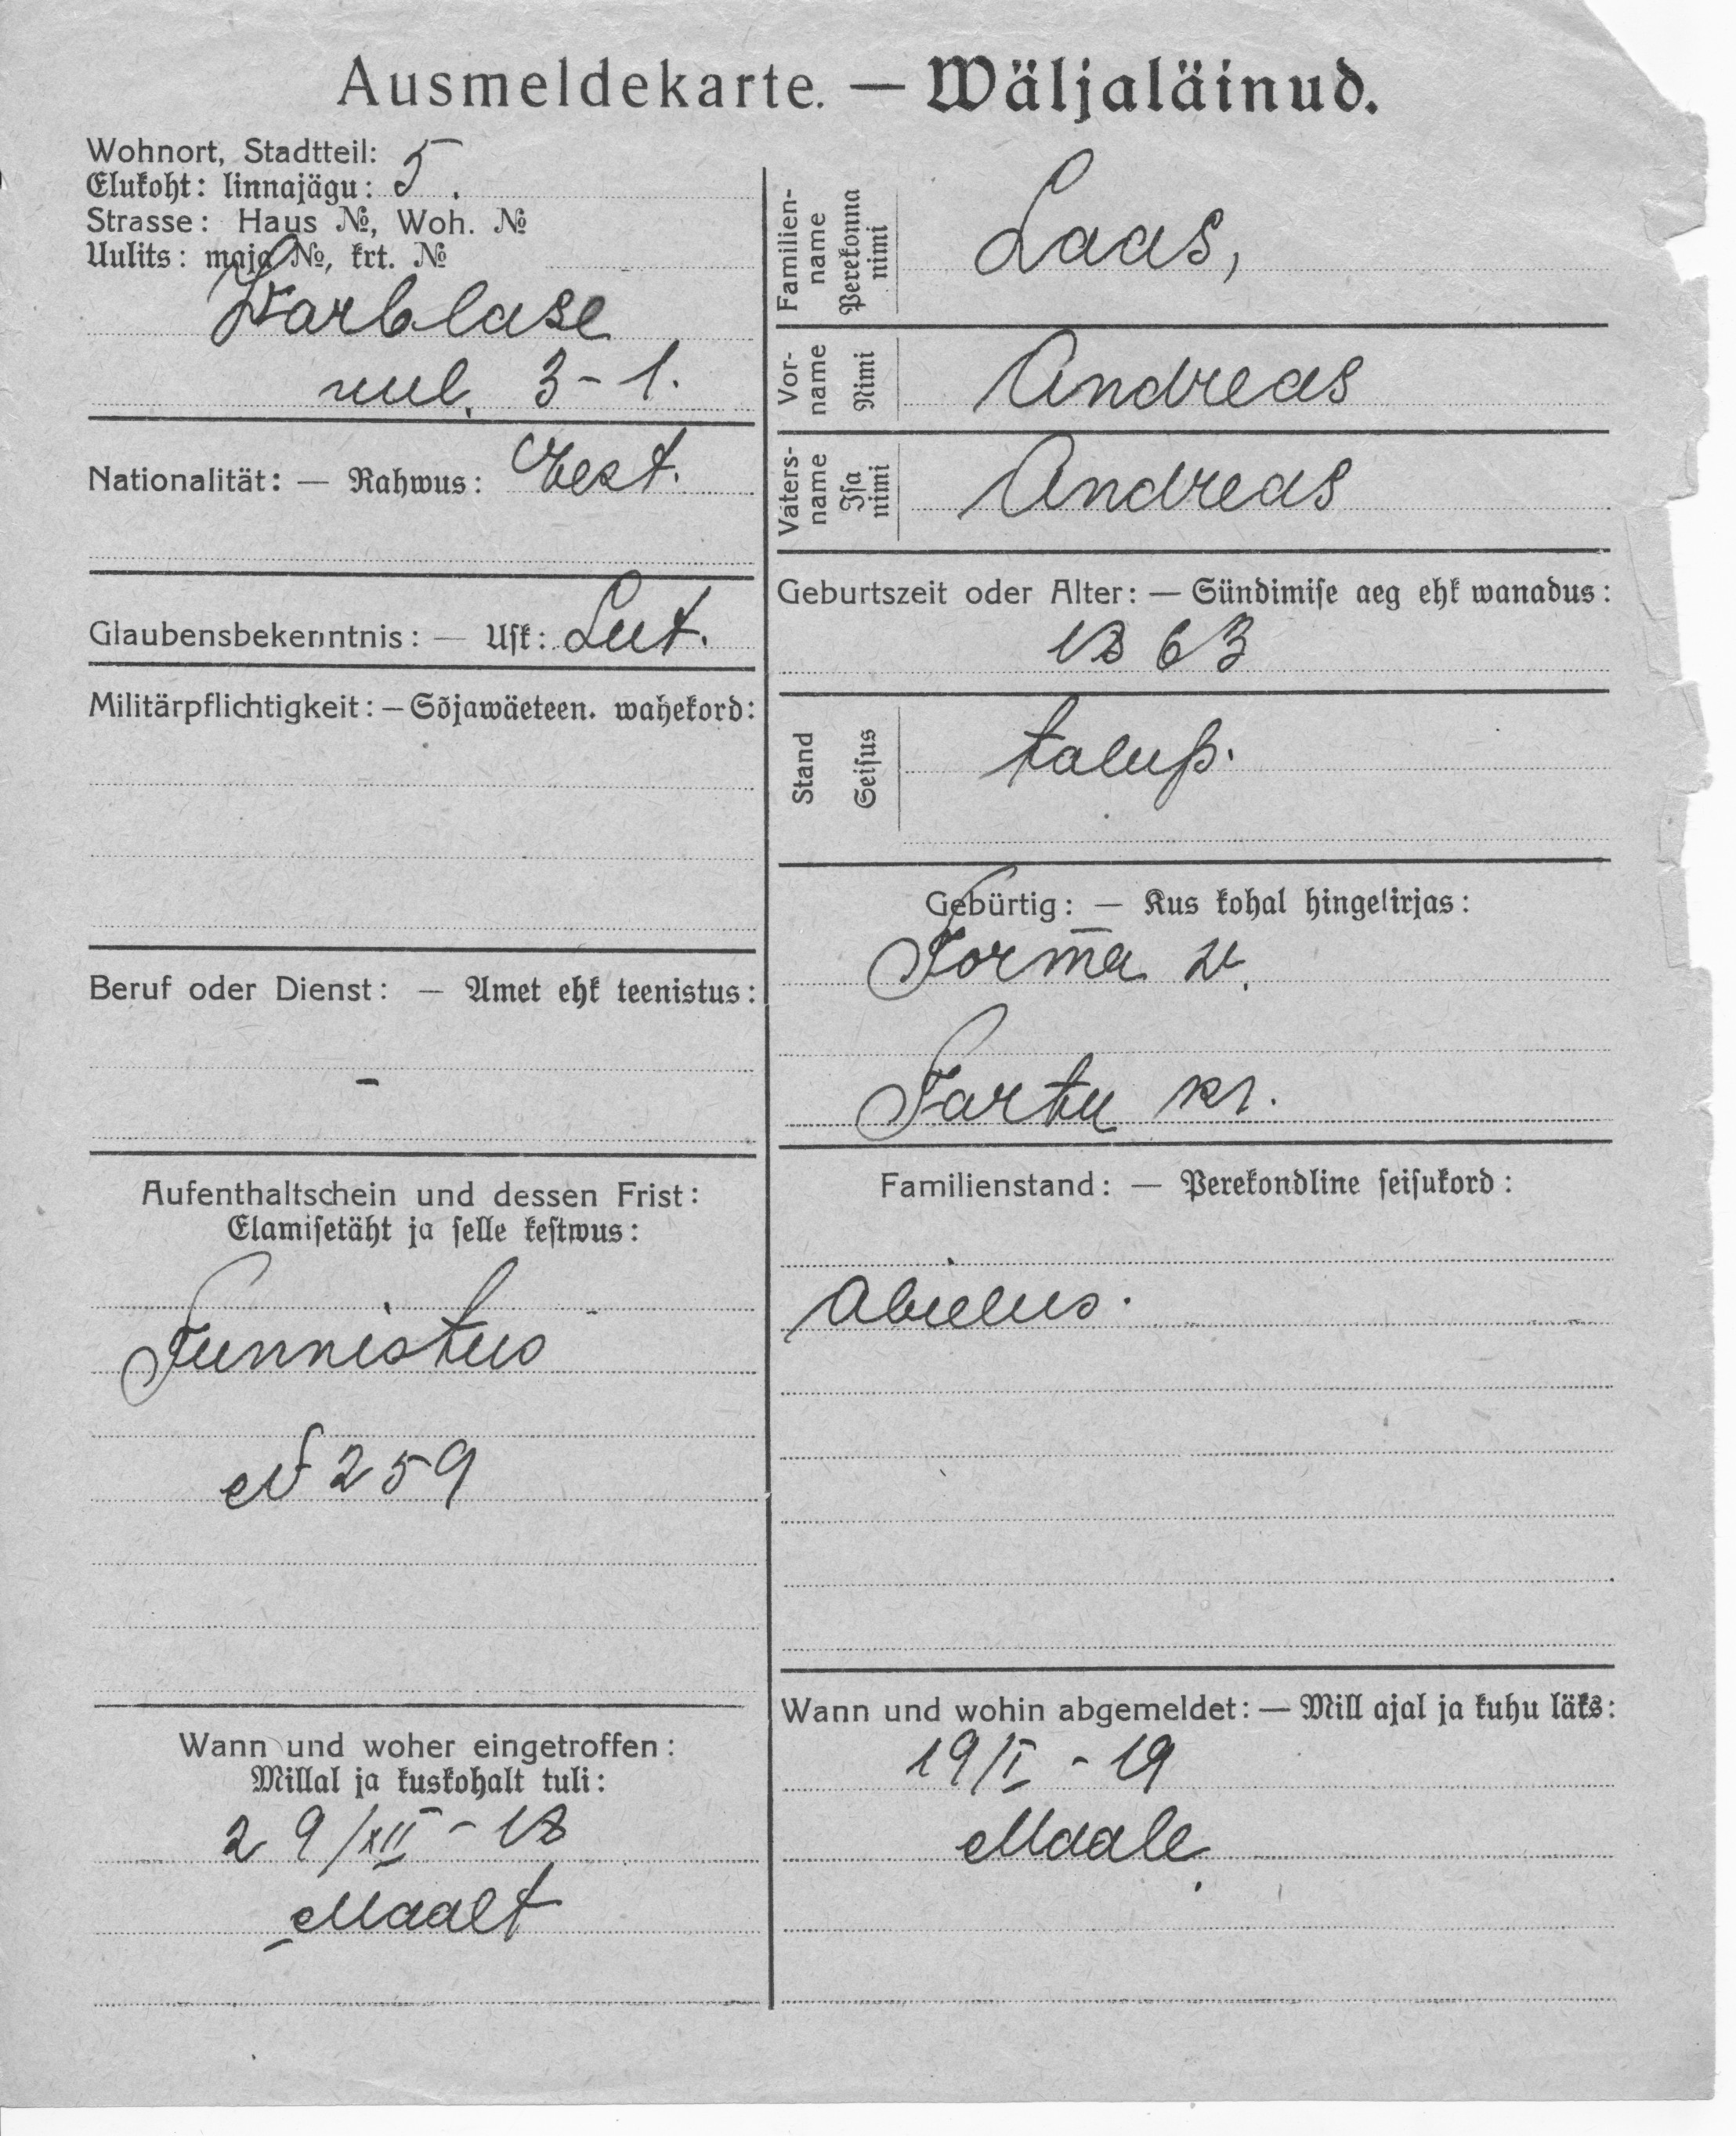 Ausmeldekarte. — Wäljaläinud.
Wohnort, Stadtteil:
Elukoht: linnajägu: 5.
Strasse: Haus №, Woh. №
Uulits: maja №, krt. №
Warblase
uul. 3-1.
Nationalität: — Rahwus: Eest.
Glaubensbekenntnis: — Usk: Lut.
Militärpflichtigkeit: — Sõjawäeteen. wahekord:
Beruf oder Dienst: — Amet ehk teenistus:
-
Aufenthaltschein und dessen Frist:
Elamisetäht ja selle kestwus:
Tunnistus
№ 259
Wann und woher eingetroffen:
Millal ja kuskohalt tuli:
29/XII - 18
Maalt
Familien-
name
Perekonna
nimi
Laas,
Vor-
name
Nimi
Andreas
Vaters-
name
Isa
nimi
Andreas
Geburtszeit oder Alter: — Sündimise aeg ehk wanadus:
1863
Stand
Seisus
talup.
Gebürtig: — Kus kohal hingekirjas:
Torma w.
Tartu kr.
Familienstand: — Perekondline seisukord:
Abielus.
Wann und wohin abgemeldet: — Mill ajal ja kuhu läks:
19/I - 19
Maale